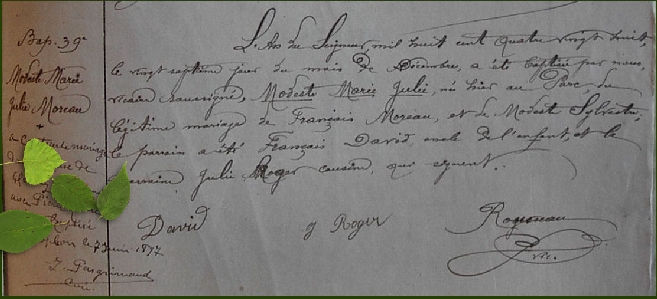 Bap. 39e
Modeste Marie
Julie Moreau
+
a contracté mariage
de
le 7 Juin 1897
curé
L'An du Seigneur, mil huit cent quatre vingt huit,
le vingt septième jour du mois de Décembre, a été baptisée par nous,
vicaire soussigné, Modeste Marie Julie, née hier au Parc, du
légitime mariage de François Moreau, et de Modeste Sylvestre,
le parrain a été François David, oncle de l'enfant, et la
marraine, Julie Roger cousine, qui signent.
David
J Roger
vic.